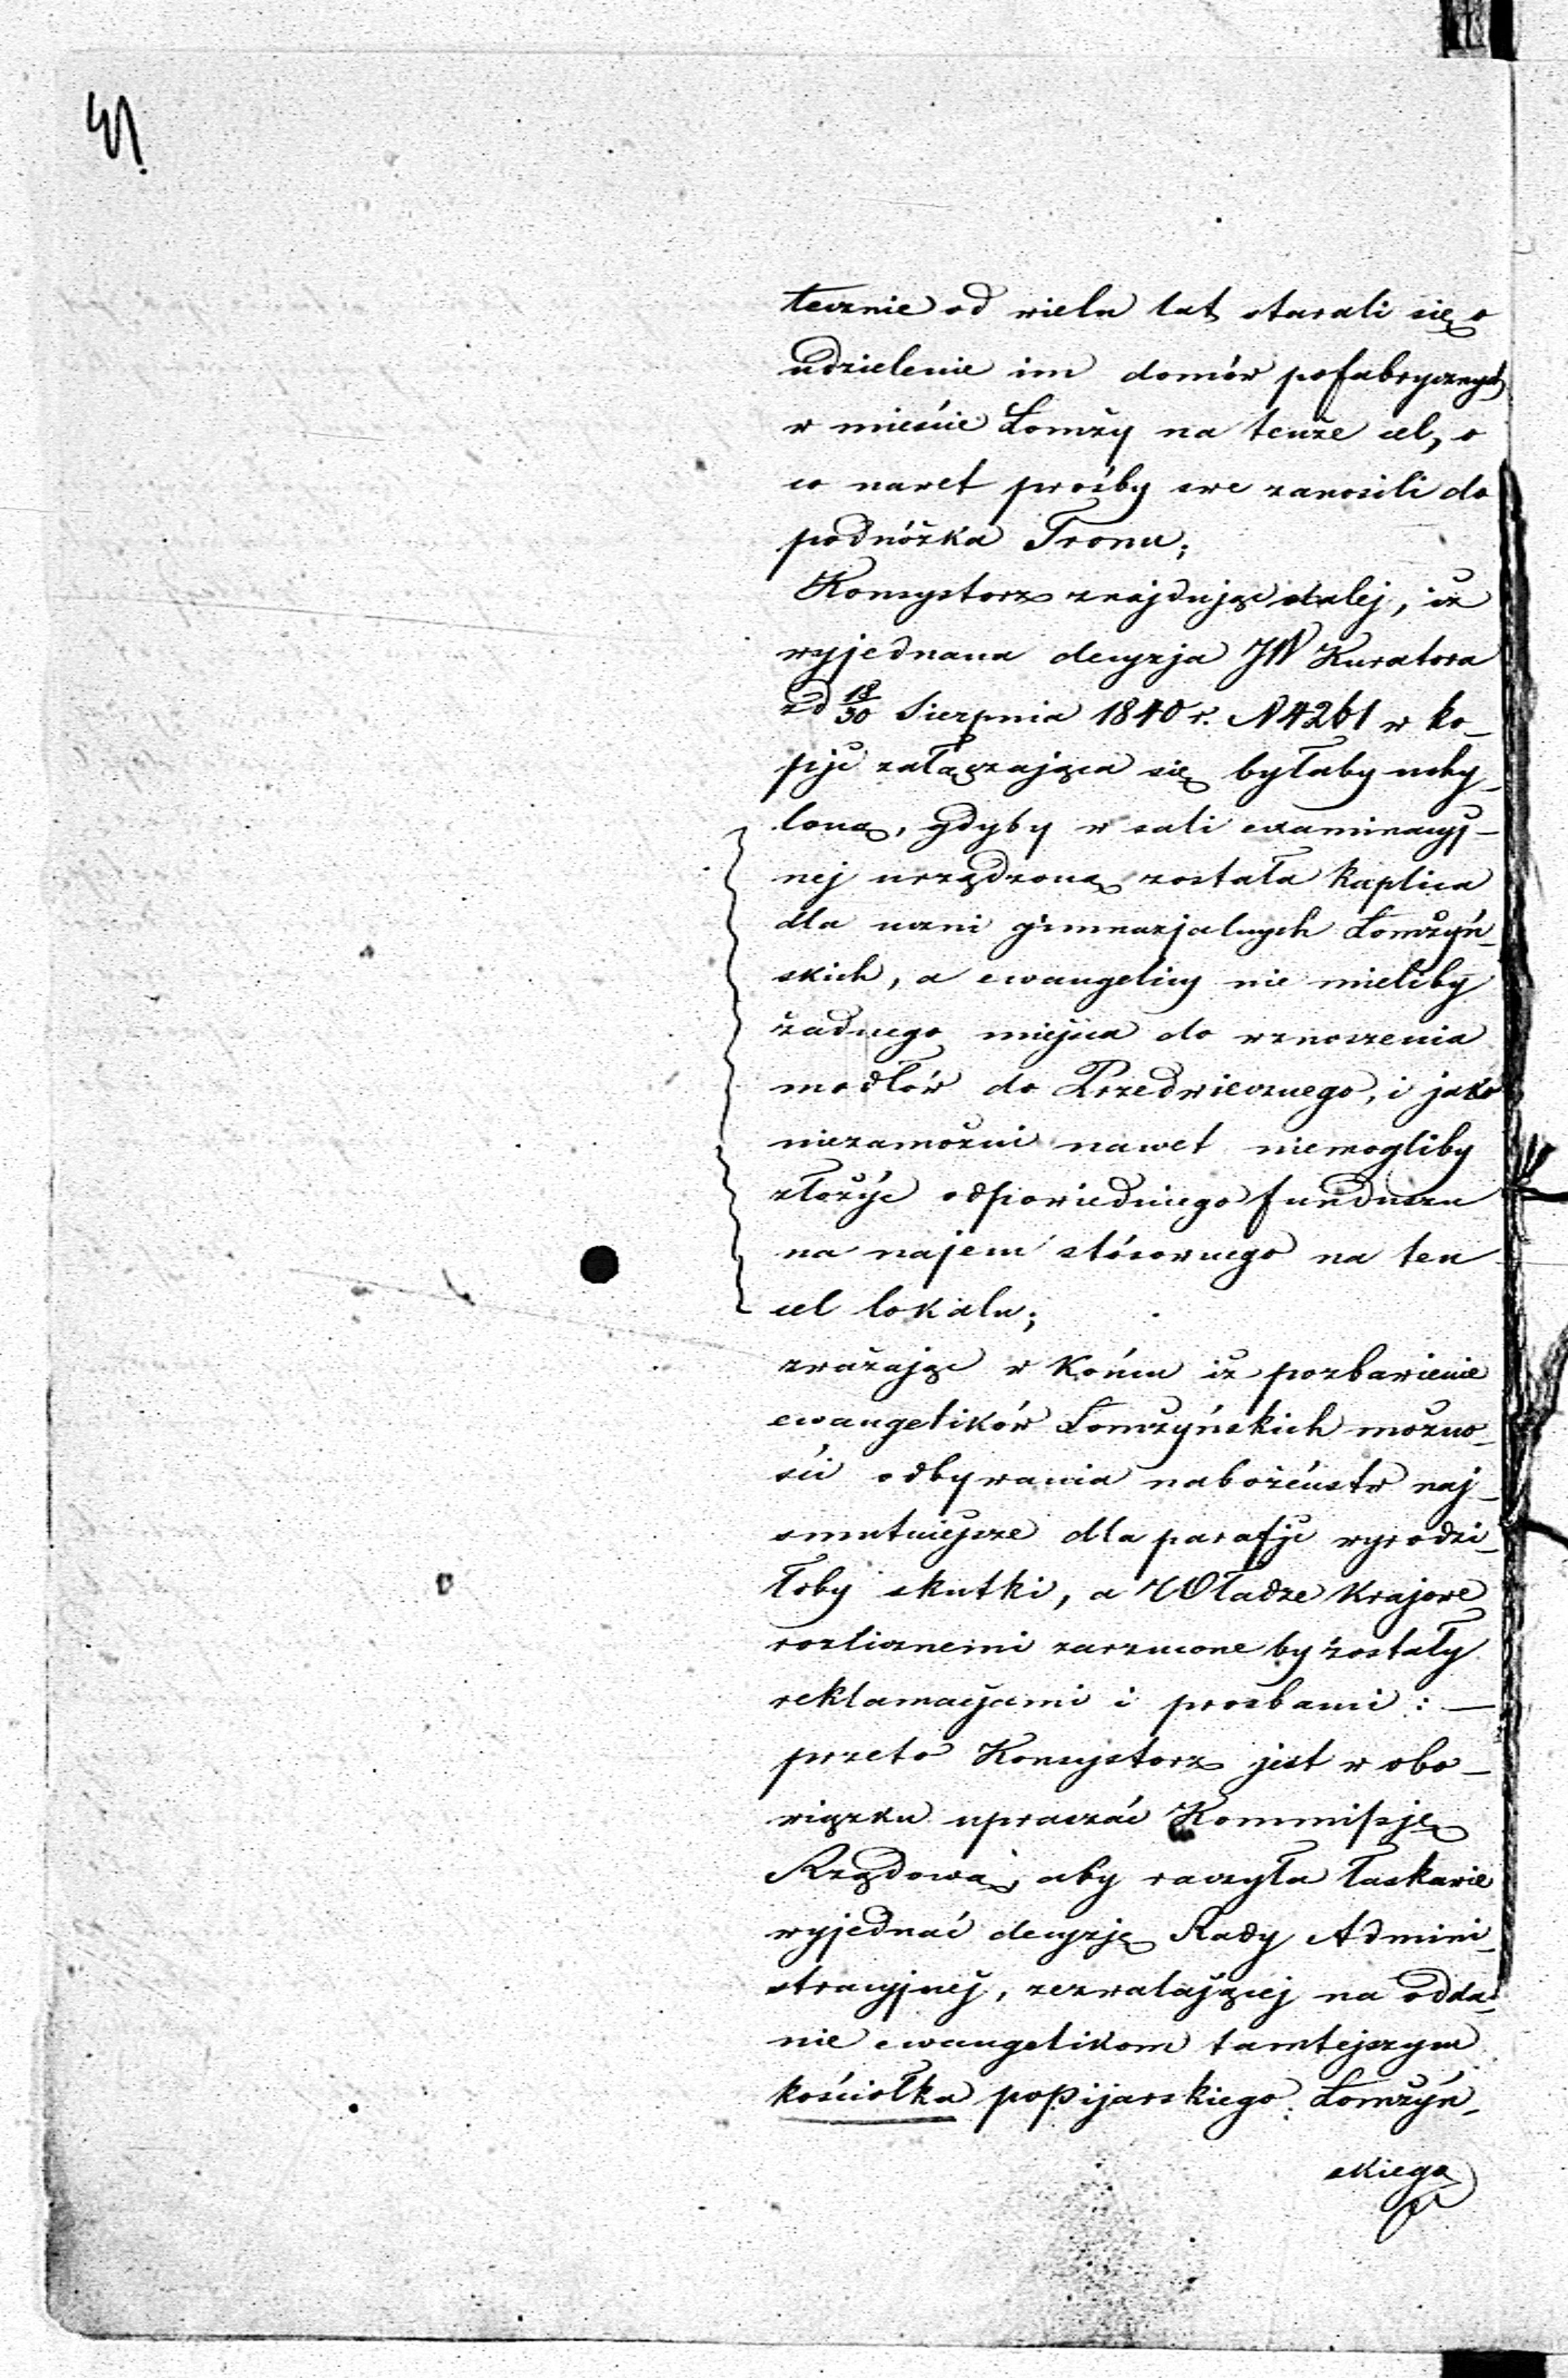 tecznie od wielu lat starali się o
udzielenie im domów pofabrycznych
w mieście Łomży na tenże cel, o
co nawet prośby swe zanosili do
podnóżka Tronu;
Konsystorz znajdując dalej, iż
wyjednana decyzja JW Kuratora
zd 18/30 Sierpnia 1840 r. N 4261 w ko-
pije załączająca się byłaby uchy-
loną, gdyby w sali examinacyj-
nej urządzoną została kaplica
dla uczni gimnazjalnych Łomżyń-
skich, a ewangelicy nie mieliby
żadnego miejsca do wznoszenia
modłów do Przedwiecznego, i jako
niezamożni nawet niemogliby
złożyć odpowiedniego funduszu
na najem stósownego na ten
cel lokalu;
zważając w końcu iż pozbawienie
ewangelików Łomżyńskich możno-
ści odbywania nabożeństw naj-
smutniejsze dla parafje wyrodzi-
łoby skutki, a Władze Krajowe
rozlicznemi zarzucone by zostały
reklamacjami i prosbami: —
przeto Konsystorz jest w obo-
wiązku upraszać Kommissję
Rządową, aby raczyła łaskawie
wyjednać decyzję Rady Admini-
stracyjnej, zezwalającej na odda-
nie ewangelikom tamtejszym
kościołka popijarskiego Łomżyń-
skiego